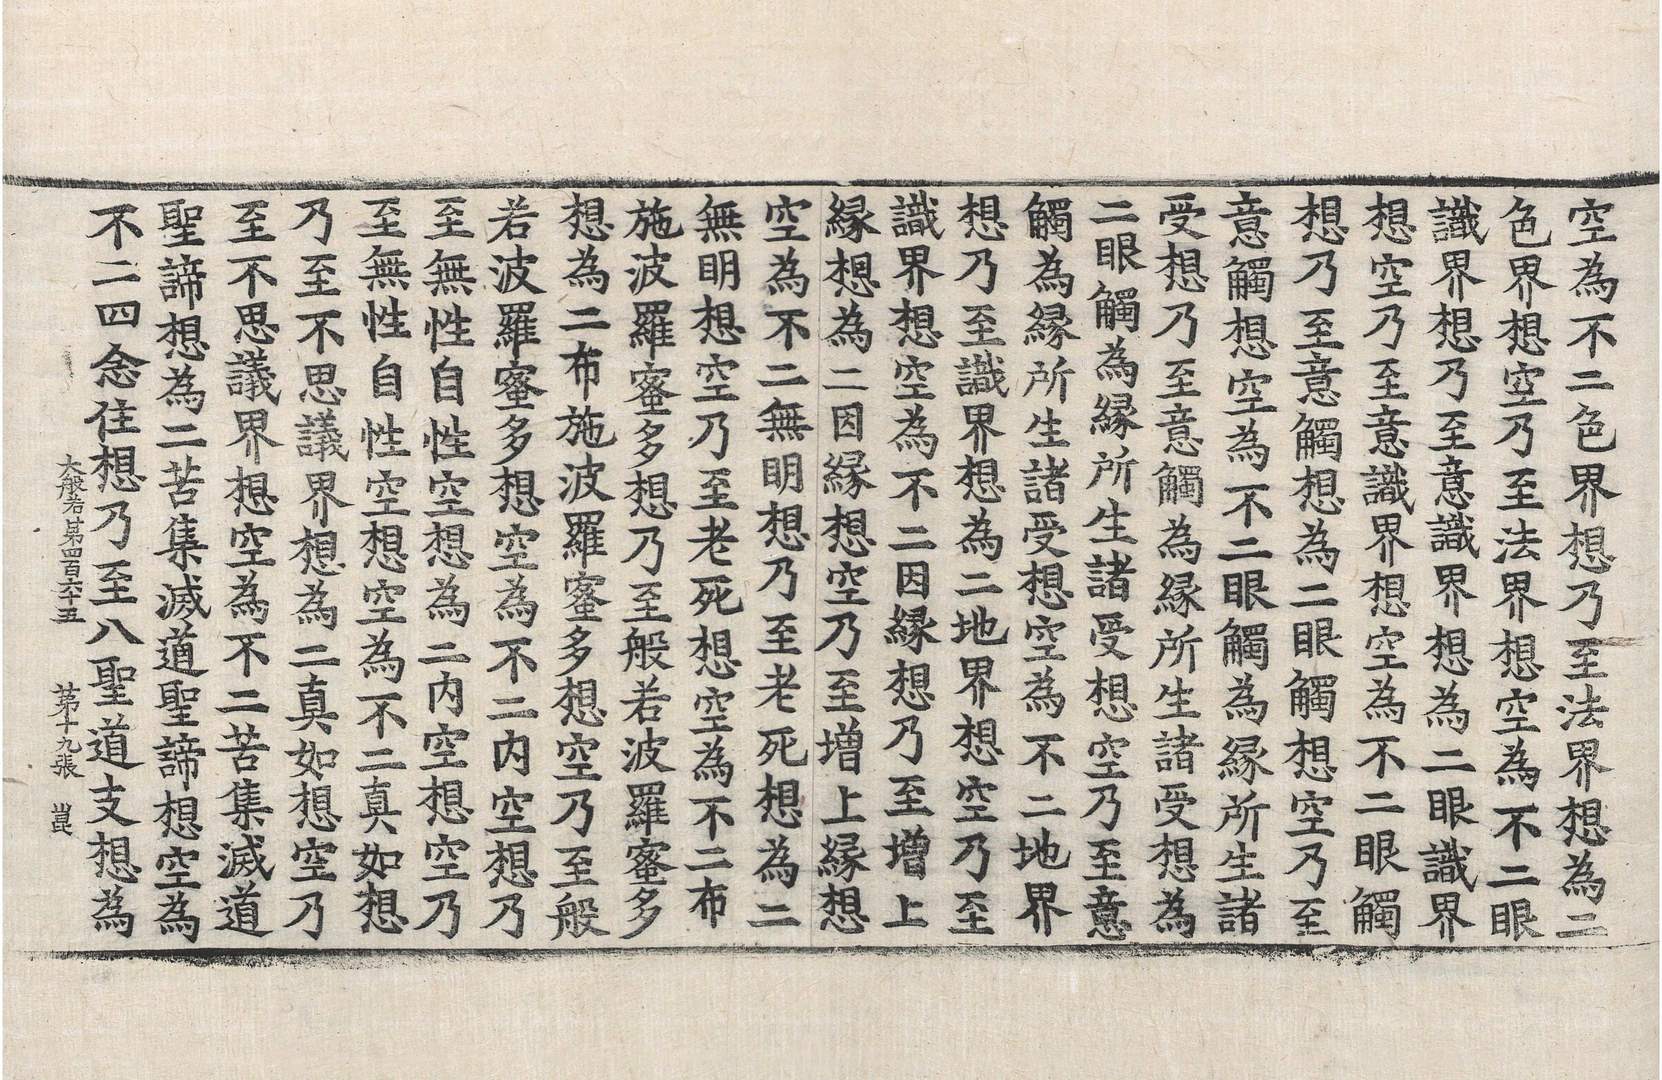 空為不二色界想乃至法界想為二
色界想空乃至法界想空為不二眼
識界想乃至意識界想為二眼識界
想空乃至意識界想空為不二眼觸
想乃至意觸想為二眼觸想空乃至
意觸想空為不二眼觸為縁所生諸
受想乃至意觸為縁所生諸受想為
二眼觸為縁所生諸受想空乃至意
觸為縁所生諸受想空為不二地界
想乃至識界想為二地界想空乃至
識界想空為不二因縁想乃至增上
縁想為二因縁想空乃至增上縁想
空為不二無明想乃至老死想為二
無明想空乃至老死想空為不二布
施波羅蜜多想乃至般若波羅蜜多
想為二布施波羅蜜多想空乃至般
若波羅蜜多想空為不二内空想乃
至無性自性空想為二内空想空乃
至無性自性空想空為不二真如想
乃至不思議界想為二真如想空乃
至不思議界想空為不二苦集滅道
聖諦想為二苦集滅道聖諦想空為
不二四念住想乃至八聖道支想為
大般若第四百六十五 第十九張 崑